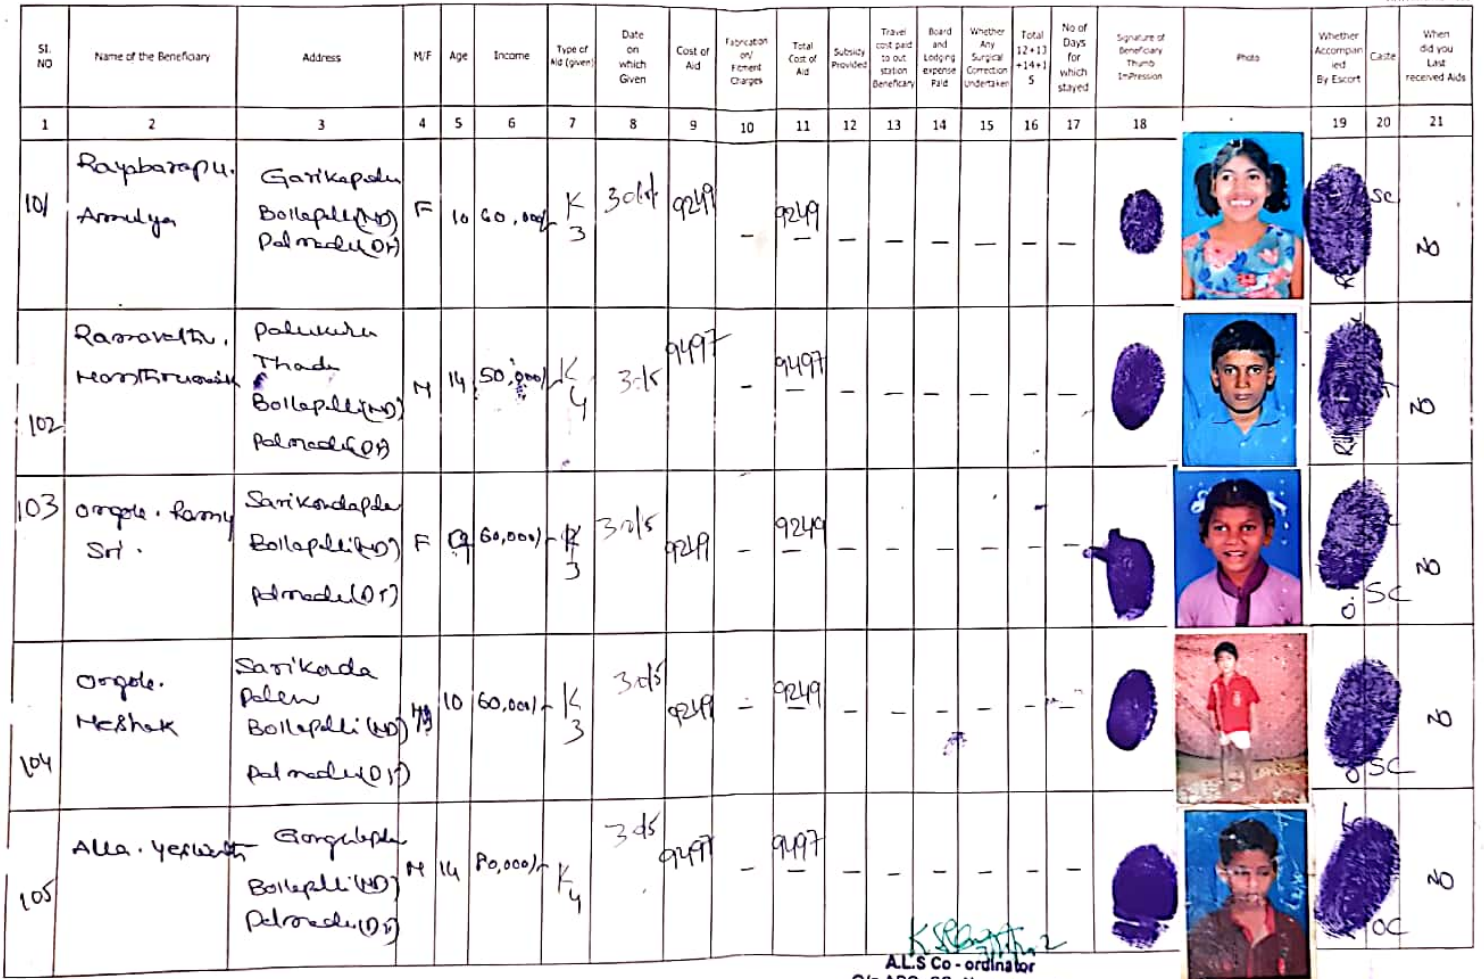 Sl. NO | Name of the Beneficiary | Address | M/F | Age | Income | Type of Aid (given) | Date on which Given | Cost of Aid | Fabrication on/ Fitment Charges | Total Cost of Aid | Subsidy Provided | Travel cost paid to out station Beneficiary | Board and Lodging expense Paid | Whether Any Surgical Correction Undertaken | Total 12+13+14+15 | No of Days for which stayed | Signature of Beneficiary Thumb ImPression | Photo | Whether Accompanied By Escort | Caste | When did you Last received Aids
1 | 2 | 3 | 4 | 5 | 6 | 7 | 8 | 9 | 10 | 11 | 12 | 13 | 14 | 15 | 16 | 17 | 18 | 19 | 20 | 21
101 | Rayabarapu. Amulya | Garikapadu Bollapalli(MD) Palnadu(Dt) | F | 10 | 60,000/- | K 3 | 9249 | - | 9249 | - | - | - | - | - | - | SC | NO
102 | Ramavathu. | Bollapalli(MD) Palnadu(Dt) | M | 14 | 50,000/- | K 4 | 30/5 | 9497 | - | 9497 | - | - | - | - | - | - | NO
103 | Ongole. Sri. | Bollapalli(MD) Palnadu(DT) | F | 9 | 60,000/- | K 3 | 30/5 | 9249 | - | 9249 | - | - | - | - | - | - | SC | NO
104 | Ongole. Meshak | Sarikonda Palem Bollapalli(MD) Palnadu(DT) | M | 10 | 60,000/- | K 3 | 30/5 | 9249 | - | 9249 | - | - | - | - | - | - | SC | NO
105 | Alla. Yeswanth | Bollapalli(MD) Palnadu(Dt) | M | 14 | 80,000/- | K 4 | 30/5 | 9497 | - | 9497 | - | - | - | - | - | - | OC | NO
A.L.S Co - ordinator